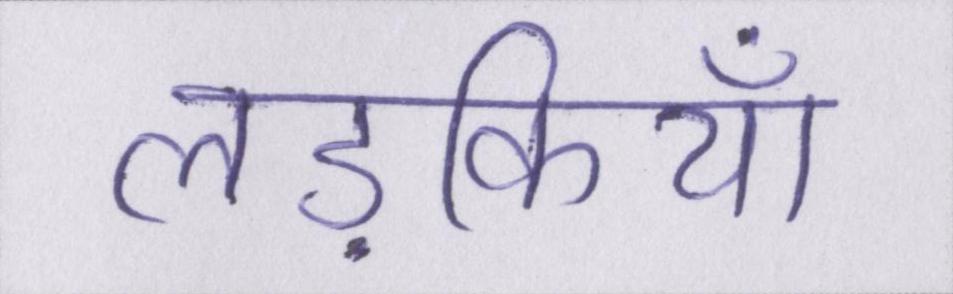 लड़कियाँ